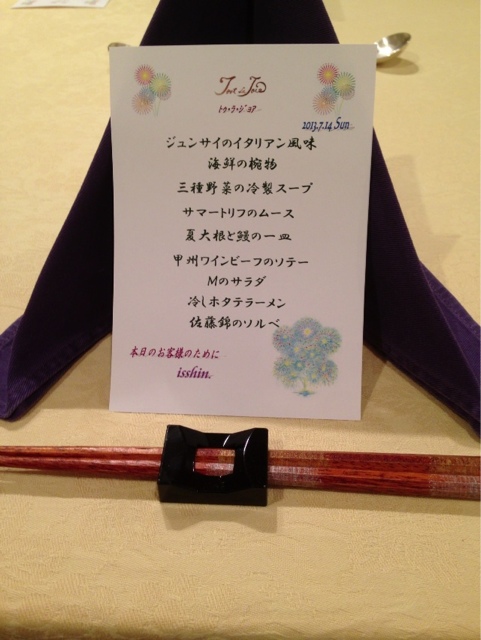 Tour de Joia
トゥ・ラ・ジョア
2013.7.14 Sun
ジュンサイのイタリアン風味
海鮮の椀物
三種野菜の冷製スープ
サマートリフのムース
夏大根と鰻の一皿
甲州ワインビーフのソテー
Mのサラダ
冷しホタテラーメン
佐藤錦のソルベ
本日のお客様のために
isshin.